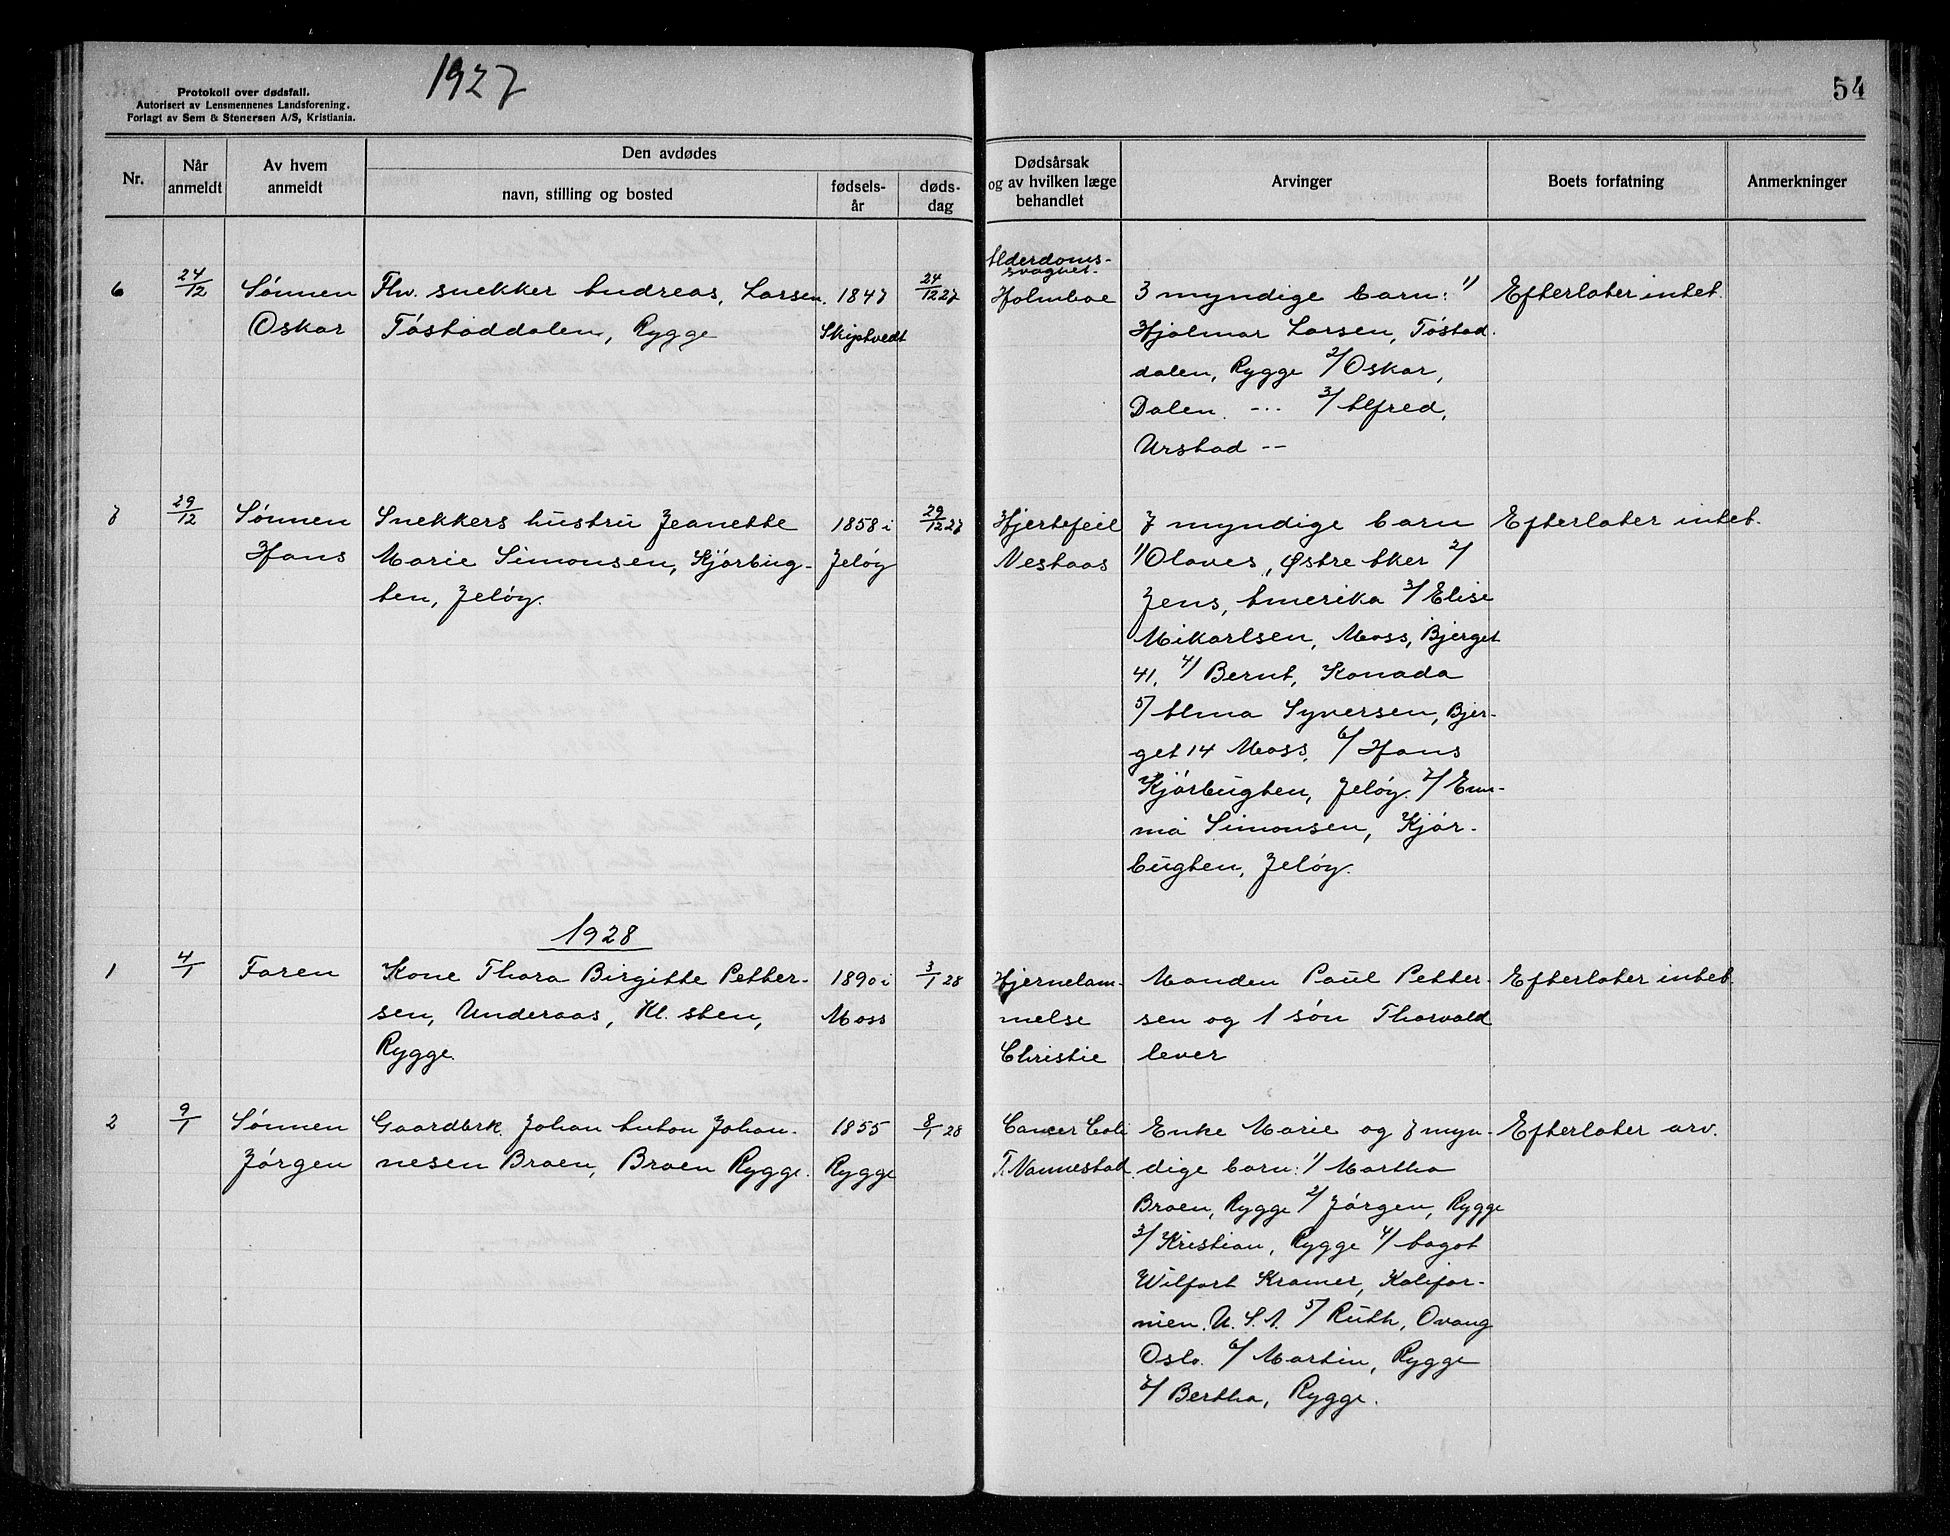 1927
54
Protokoll over dødsfall.
Autorisert av Lensmennenes Landsforening.
Forlagt av Sem & Stenersen A/S, Kristiania.
Nr.
Når anmeldt
Av hvem anmeldt
Den avdødes
navn, stilling og bosted
fødsels-år
døds-dag
Dødsårsak og av hvilken læge behandlet
Arvinger
Boets forfatning
Anmerkninger
6
24/12
Sønnen
Oskar
Fhv. snekker Andreas Larsen.
Tøstaddalen, Rygge
1847
Skiptvedt
24/12 27
Alderdoms-
svaghet.
Holmboe
3 myndige barn: 1/
Hjalmar Larsen, Tøstad-
dalen, Rygge 2/ Oskar,
Dalen. --- 3/ Alfred,
Urstad --
Efterlater intet.
7
29/12
Sønnen
Hans
Snekkers hustru Jeanette
Marie Simonsen, Kjørbug-
ten, Jeløy.
1858 i
Jeløy
29/12 27
Hjertefeil
Nestaas
7 myndige barn
1/ Olaves, Østre Aker 2/
Jens, Amerika 3/ Elise
Mikarlsen, Moss, Bjerget
41. 4/ Bernt, Kanada
5/ Alma Syversen, Bjer-
get 14 Moss. 6/ Hans
Kjørbugten, Jeløy. 7/ Em-
ma Simonsen, Kjør-
bugten, Jeløy.
Efterlater intet.
1928
1
4/1
Faren
Kone Thora Birgitte Petter-
sen, Underaas, Kl. sten,
Rygge.
1890 i
Moss
3/1 28
Hjernelam-
melse
Christie
Manden Paul Petter-
sen og 1 søn Thorvald
lever
Efterlater intet.
2
9/1
Sønnen
Jørgen
Gaardbrk. Johan Anton Johan-
nesen Braen, Braen Rygge.
1855
Rygge
8/1 28
Cancer Coli
T. Vannestad.
Enke Marie og 7 myn-
dige barn: 1/ Martha
Braen, Rygge 2/ Jørgen, Rygge
3/ Kristian, Rygge 4/ Aagot
Wilfart Kramer, Kalifor-
nien. U. S. A. 5/ Ruth, Ovang
Oslo. 6/ Martin, Rygge
7/ Bertha, Rygge.
Efterlater arv.